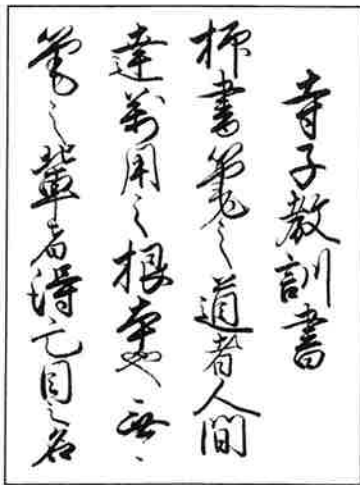 寺子教訓書
抑書筆之道者人間
達萬用之根本也無
筆之輩者得亡目之名